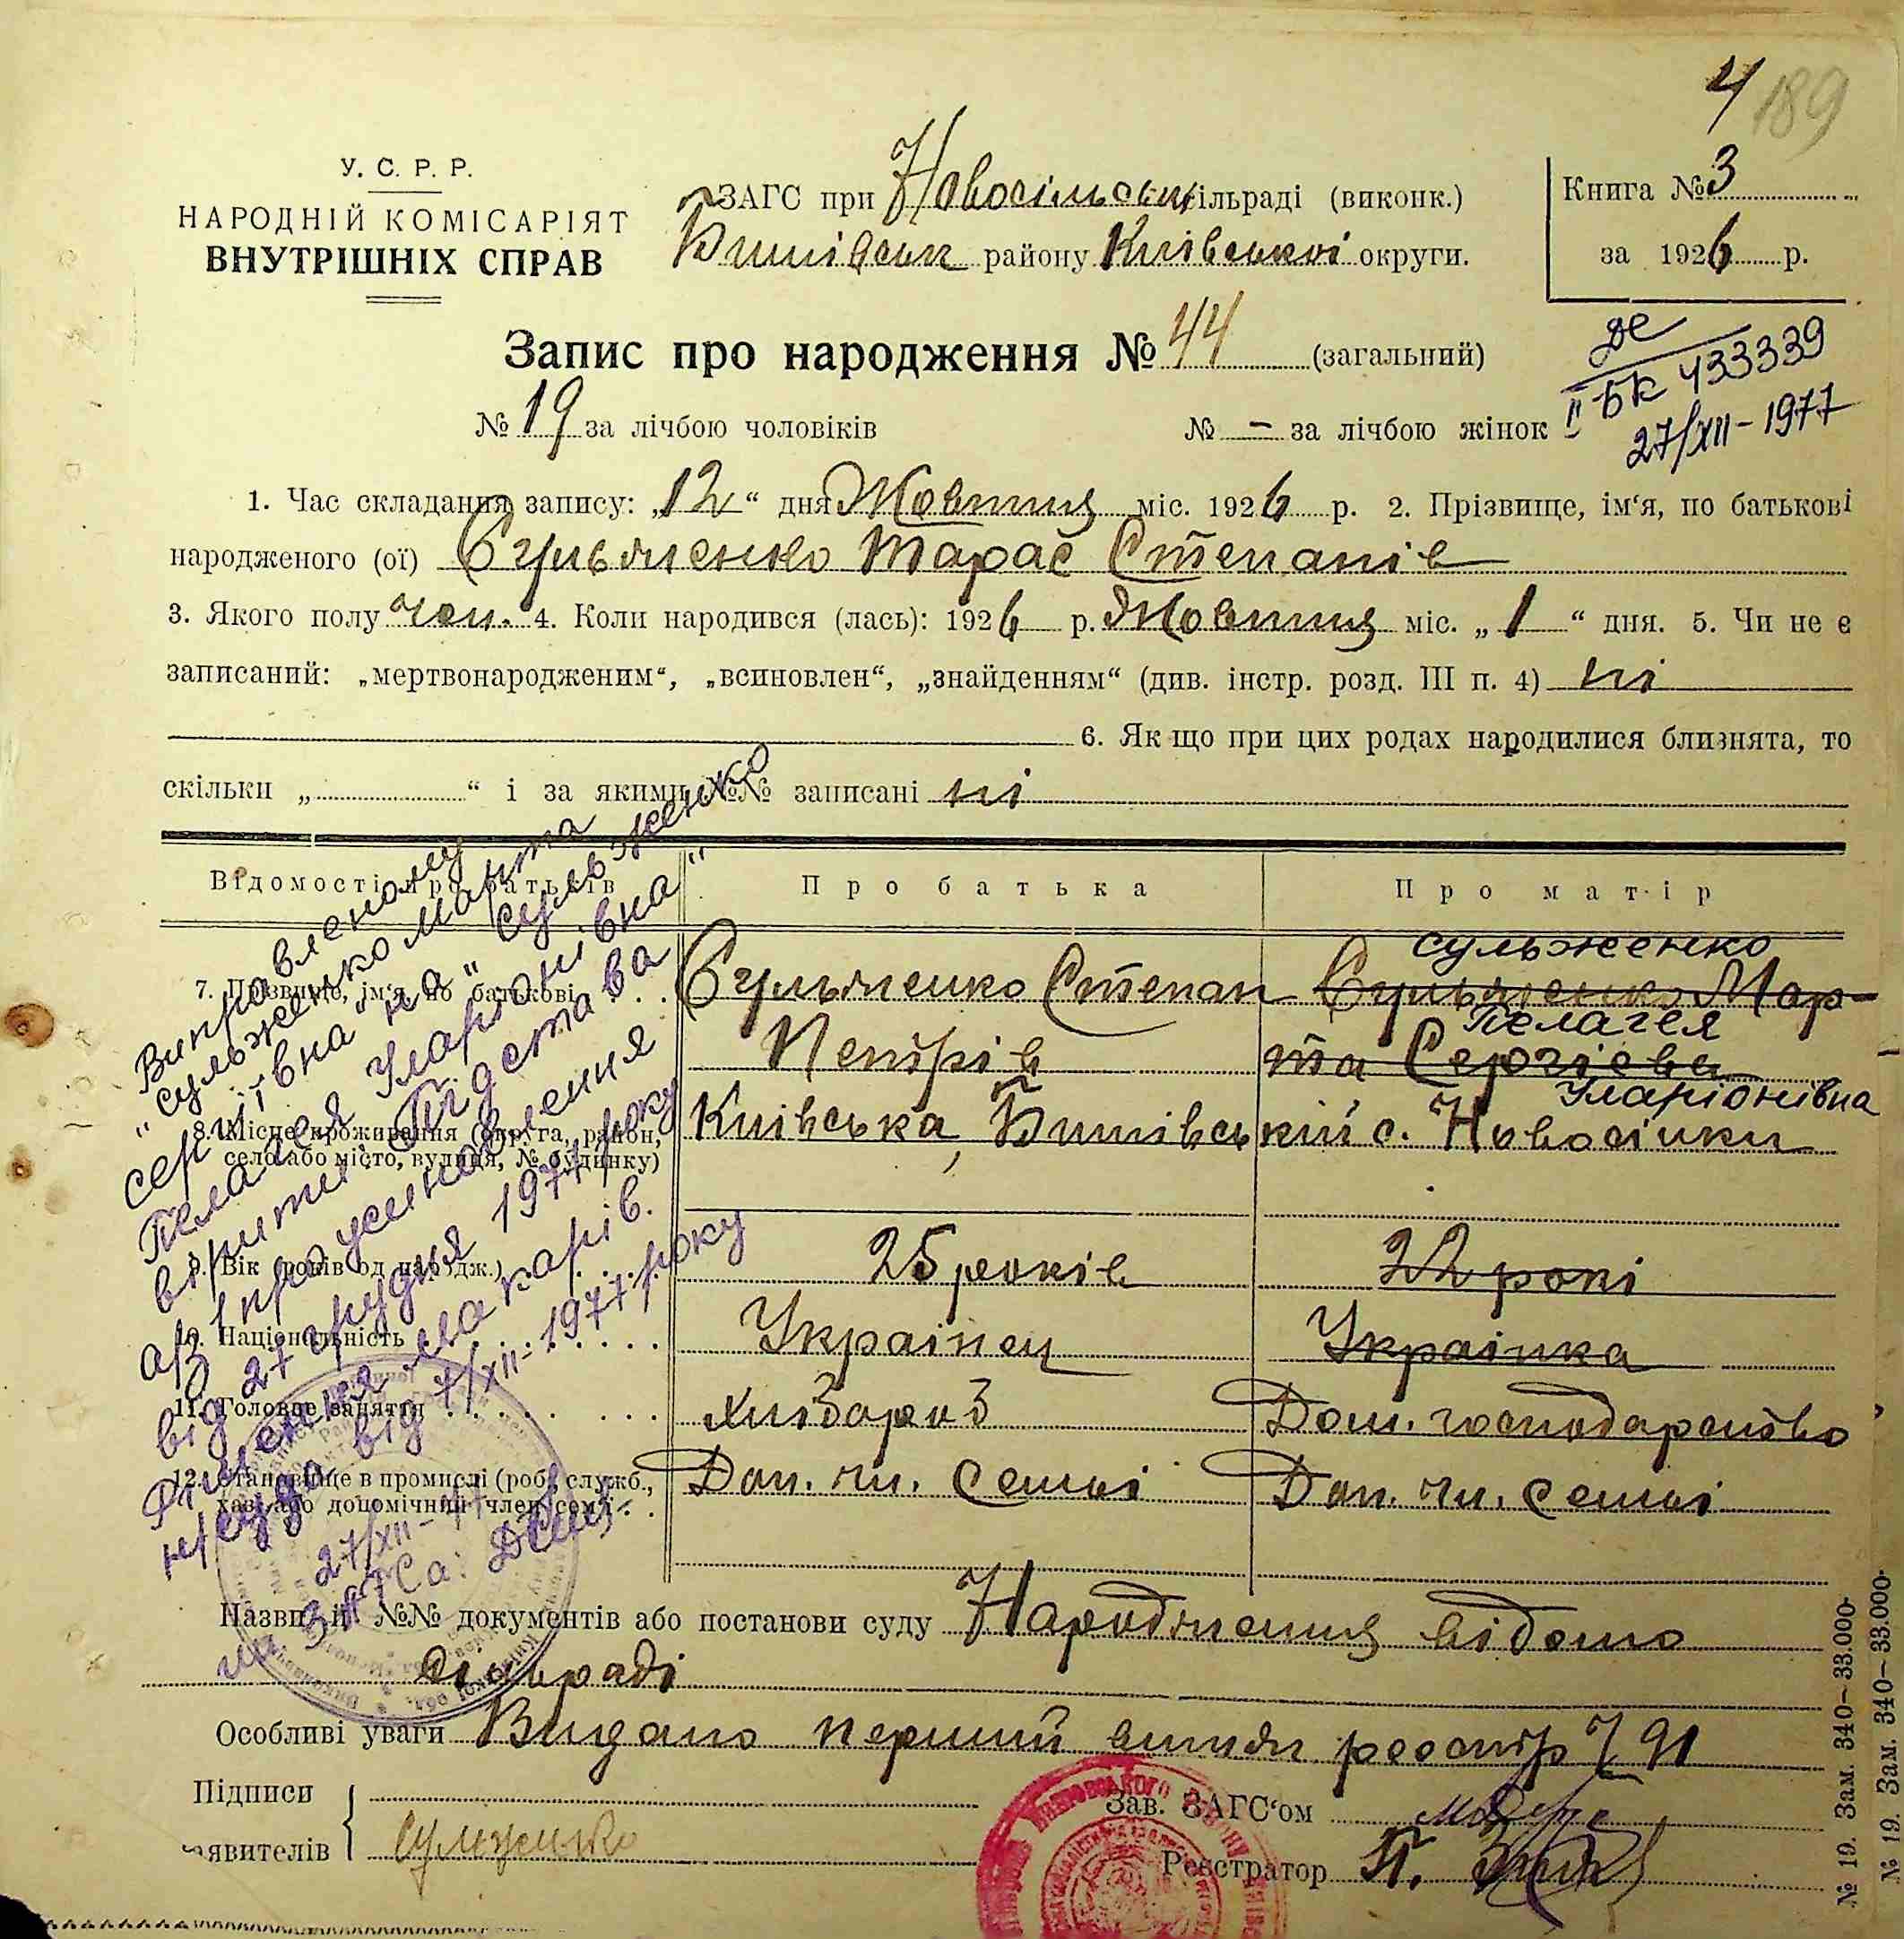 4 189
У. С. Р. Р.
НАРОДНІЙ КОМІСАРІЯТ
ВНУТРІШНІХ СПРАВ
ЗАГС при Новосільськ сільраді (виконк.)
Бишівськ району Київської округи.
Книга № 3
за 1926 р.
Запис про народження № 44 (загальний)
№ 19 за лічбою чоловіків № — за лічбою жінок
ІІ БК 433339
27/XII-1977
1. Час складання запису: „12“ дня Жовтня міс. 1926 р. 2. Прізвище, ім‘я, по батькові
народженого (ої) Сульженко Тарас Степанів
3. Якого полу чол. 4. Коли народився (лась): 1926 р. Жовтня міс. „1“ дня. 5. Чи не є
записаний: „мертвонародженим“, „всиновлен“, „знайденням“ (див. інстр. розд. III п. 4) ні
6. Як що при цих родах народилися близнята, то
скільки „ “ і за якими №№ записані ні
Відомості про батьків Про батька Про матір
7. Прізвище, ім‘я, по батькові Сульженко Степан Петрів
Сульженко Марта Сергієва
Сульженко Пелагея Іларіонівна
8. Місце проживання (округа, район,
село або місто, вулиця, № будинку) Київська, Бишівський с. Новосілки
9. Вік (років од народж.) 25 років 22 рокі
10. Національність Украінец Украінка
11. Головне заняття хлібороб Дом. господарство
12. Становище в промислі (роб., служб.,
хаз. або допомічний член сем‘ї) Доп. чл. семьі Доп. чл. семьі
Виправленому
"Сульженко Марта
Сергіївна" на "Сульженко
Пелагея Іларіонівна"
вірити. Підстава
а/з про виправлення
від 27 грудня 1977 року
рішення Макарів.
н/суду від 7/XII-1977 року
27/XII-77
ЗАГСа:
Назви й №№ документів або постанови суду Народження відомо
сільраді
Особливі уваги Видано перший витяг реестр № 91
Підписи
заявителів Сулженко
Зав. ЗАГС‘ом
Реєстратор П.
№ 19. Зам. 340—33.000·
№ 19. Зам. 340—33.000·